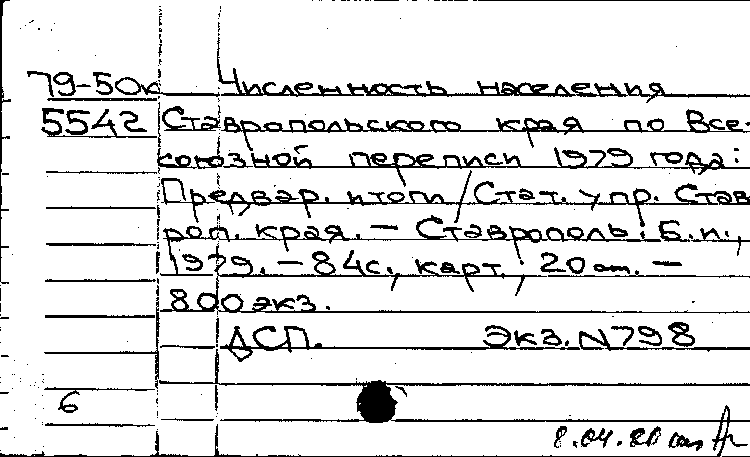 79-50к Численность населения
5542 Ставропольского края по Все-
союзной переписи 1979 года:
Предвар. итоги / Стат. упр. Став
роп. края. — Ставрополь: Б.и.,
1979. — 84с., карт.; 20 см. —
800 экз.
ДСП. Экз. N798
6
8.04.80